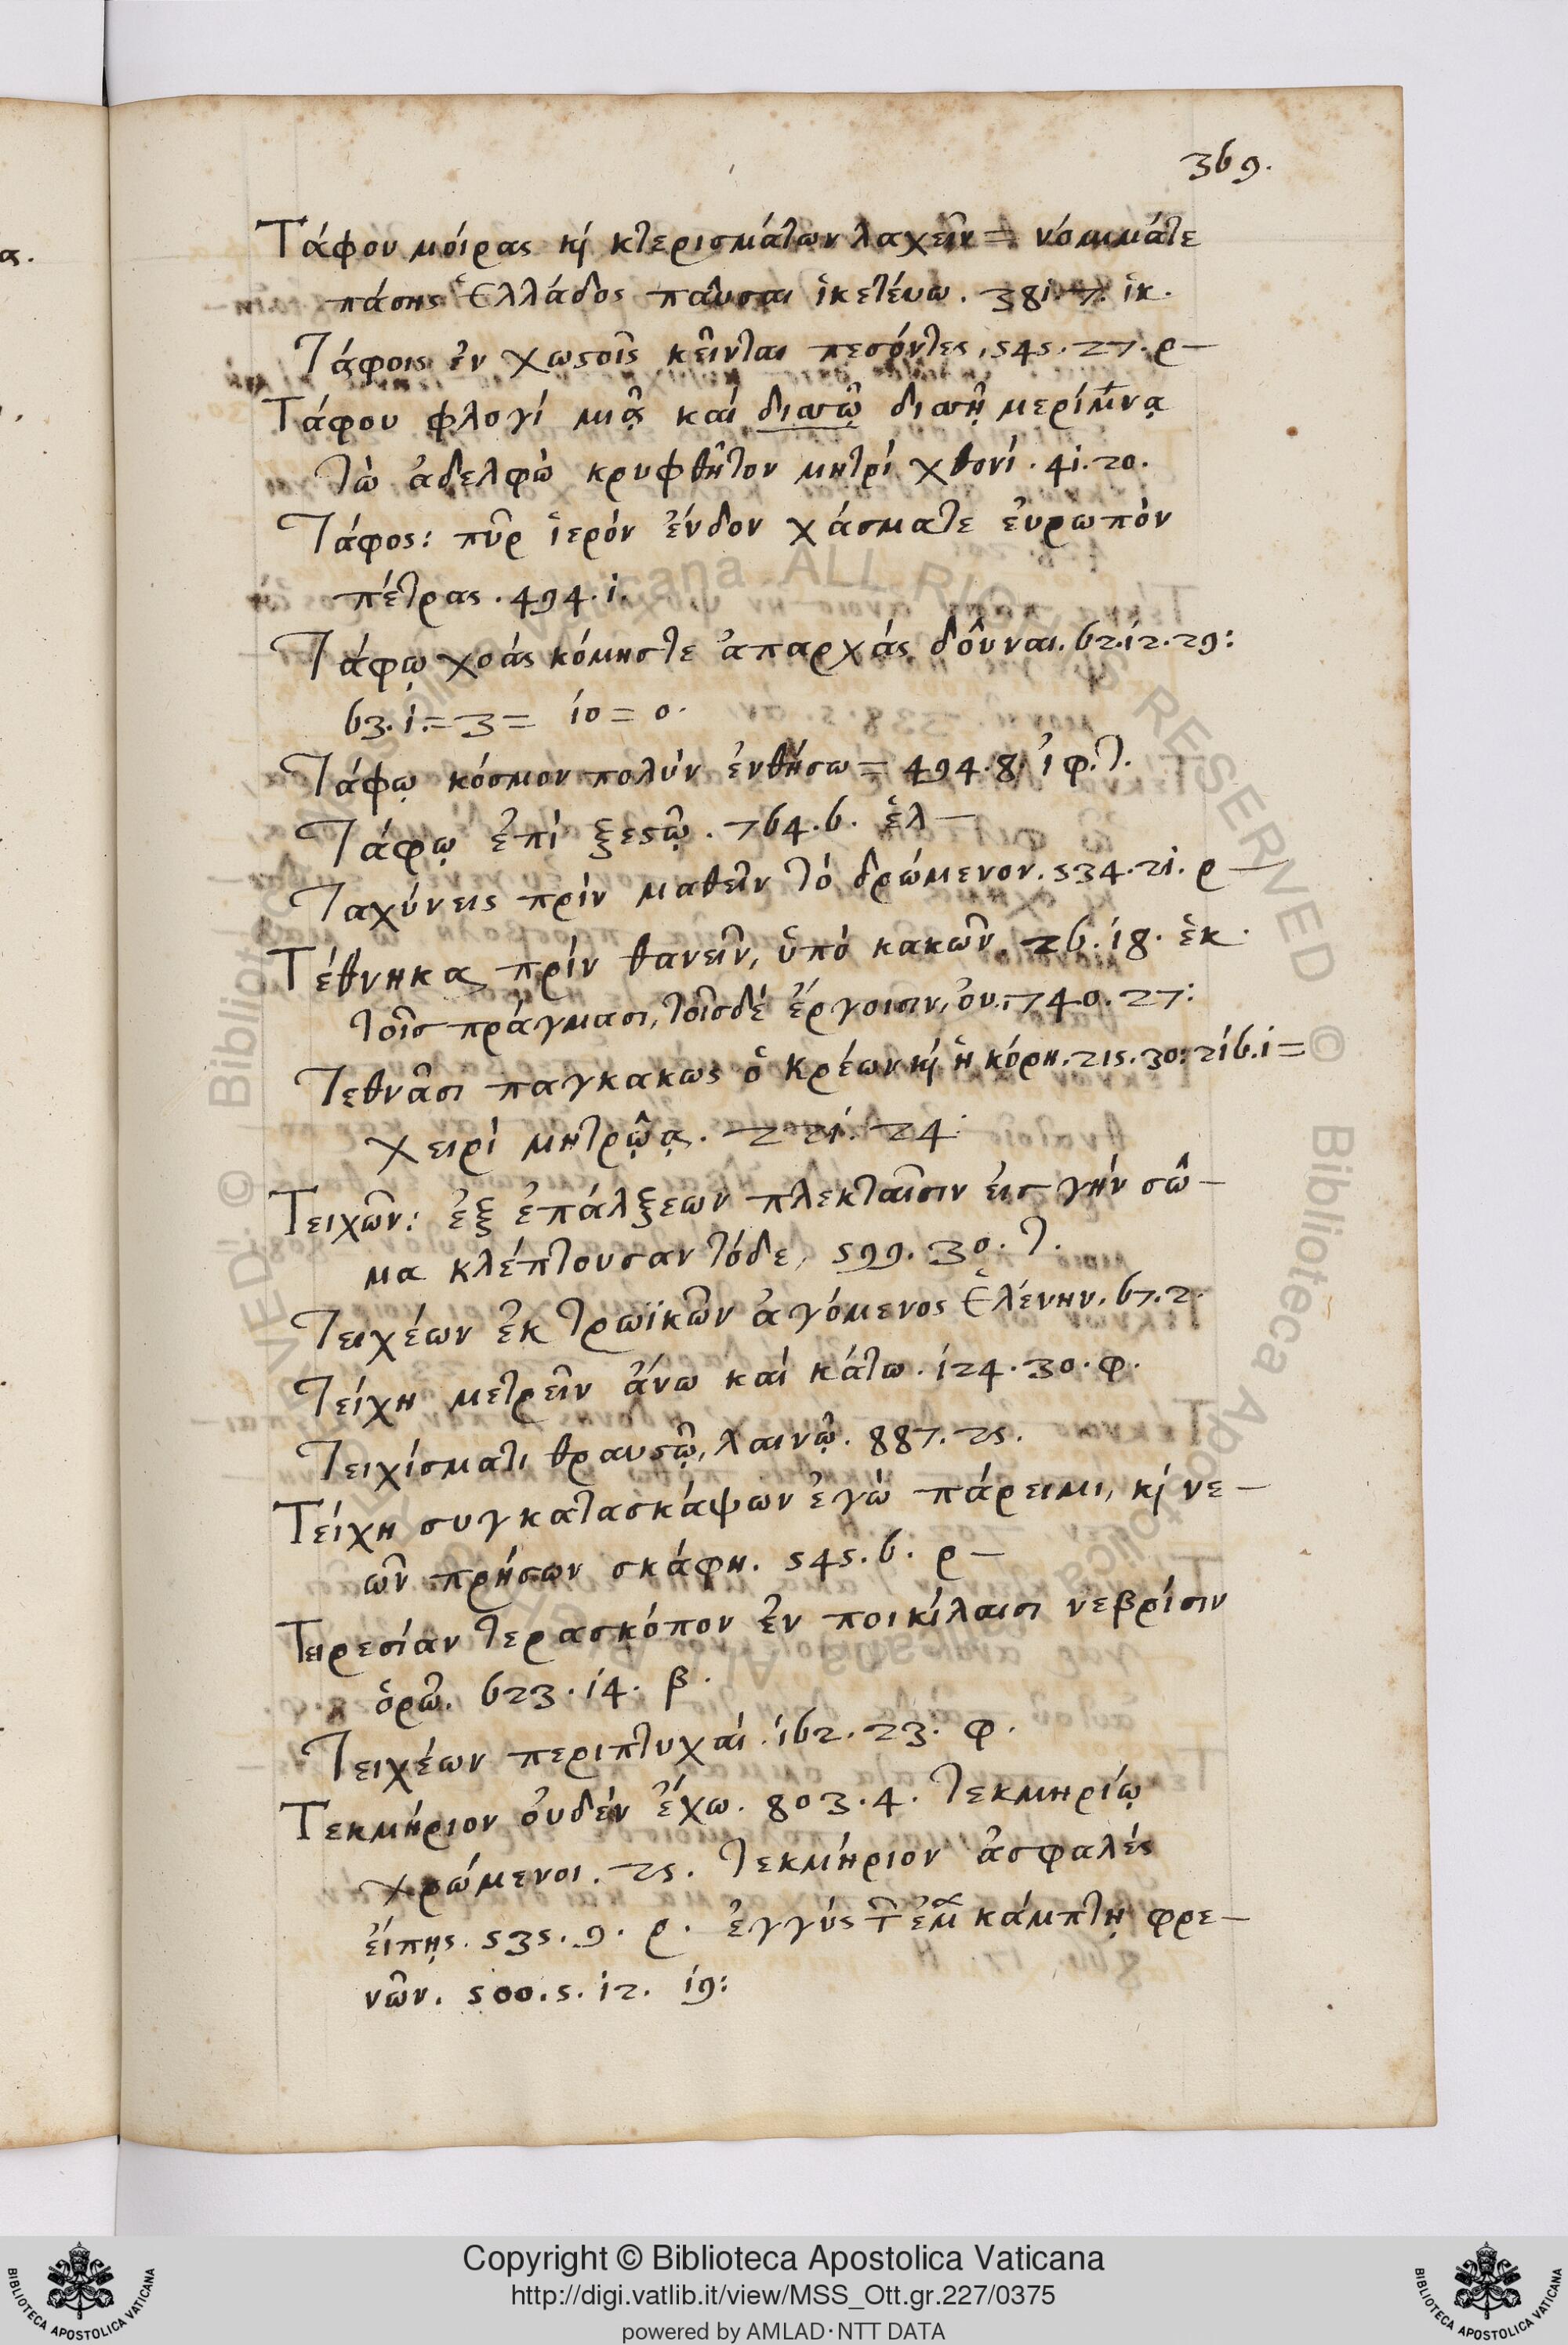 369.
Τάφου μόιρας κ̀ κτερισμάτων λαχεῖν = νόμιμάτε
πάσης Ἑλλάδος παῦσαι ἱκετέυω. 381.7. ἱκ.
Τάφοις ἐν χωστοῖς κεῖνται πεσόντες. 545.27. ρ –
Τάφου φλογί μιᾷ καί διατῷ διατῇ μερίμνᾳ
τὼ ἀδελφὼ κρυφθῆτον μητρί χθονί. 41.20.
Τάφος: πῦρ ἱερόν ἔνδον χάσματε ἐυρωπὸν
πέτρας. 494.1.
Τάφῳ χοάς κόμηστε ἀπαρχάς δοῦναι. 62.12.29:
63.1.=3= 10=0.
Τάφῳ κόσμον πολύν ἐνθήσω = 494.8. ἰφ.τ.
Τάφῳ ἐπί ξεστῷ. 764.6. ἑλ –
Ταχύνεις πρίν μαθεῖν τό δρώμενον. 534.21. ρ –
Τέθνηκα πρίν θανεῖν, ὑπό κακῶν. 26.18. ἑκ.
τοῖς πράγμασι, τοῖσδέ ἔργοισιν, ὄυ. 740.27:
Τεθνᾶσι παγκακως ὁ Κρέων κ̀ ἡ κόρη. 215.30: 216.1=
χειρί μητρῴᾳ. 221.24:
Τειχῶν: ἐξ ἐπάλξεων πλεκταῖσιν ἐις γήν σῶ –
μα κλέπτουσαν τόδε, 599.30. τ.
Τειχέων ἐκ τρωϊκῶν ἀγόμενος Ἑλένην. 67.2.
Τείχη μετρεῖν ἄνω καί κάτω. 124.30. φ.
Τειχίσματι θραυστῷ, λαινῷ. 887.25.
Τείχη συγκατασκάψων ἐγώ πάρειμι, κ̀ νε –
ῶν πρήσων σκάφη. 545.6. ρ –
Τειρεσίαν τερασκόπον ἐν ποικίλαισι νεβρίσιν
ὁρῶ. 623.14. β.
Τειχέων περιπτυχαί. 162.23. φ.
Τεκμήριον ὀυδέν ἔχω. 803.4. τεκμηρίῳ
χρώμενοι. 25. τεκμήριον ἀσφαλές
ἐίπῃς. 535.9. ρ. ἐγγύς τ̑ ἐμ̑ κάμπτῃ φρε –
νῶν. 500.5.12. 19:
Copyright © Biblioteca Apostolica Vaticana
http://digi.vatlib.it/view/MSS_Ott.gr.227/0375
powered by AMLAD·NTT DATA
BIBLIOTECA APOSTOLICA VATICANA
BIBLIOTECA APOSTOLICA VATICANA